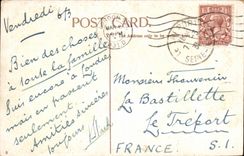 Vendredi 6/3
POST CARD.
Bien des choses
à toute la famille
Suis encore à Londres
mais en passant
seulement.
Amitiés sincères
toujours
Monsieur Thouvenin
La Bastillette
Le Tréport
S.I.
FRANCE.